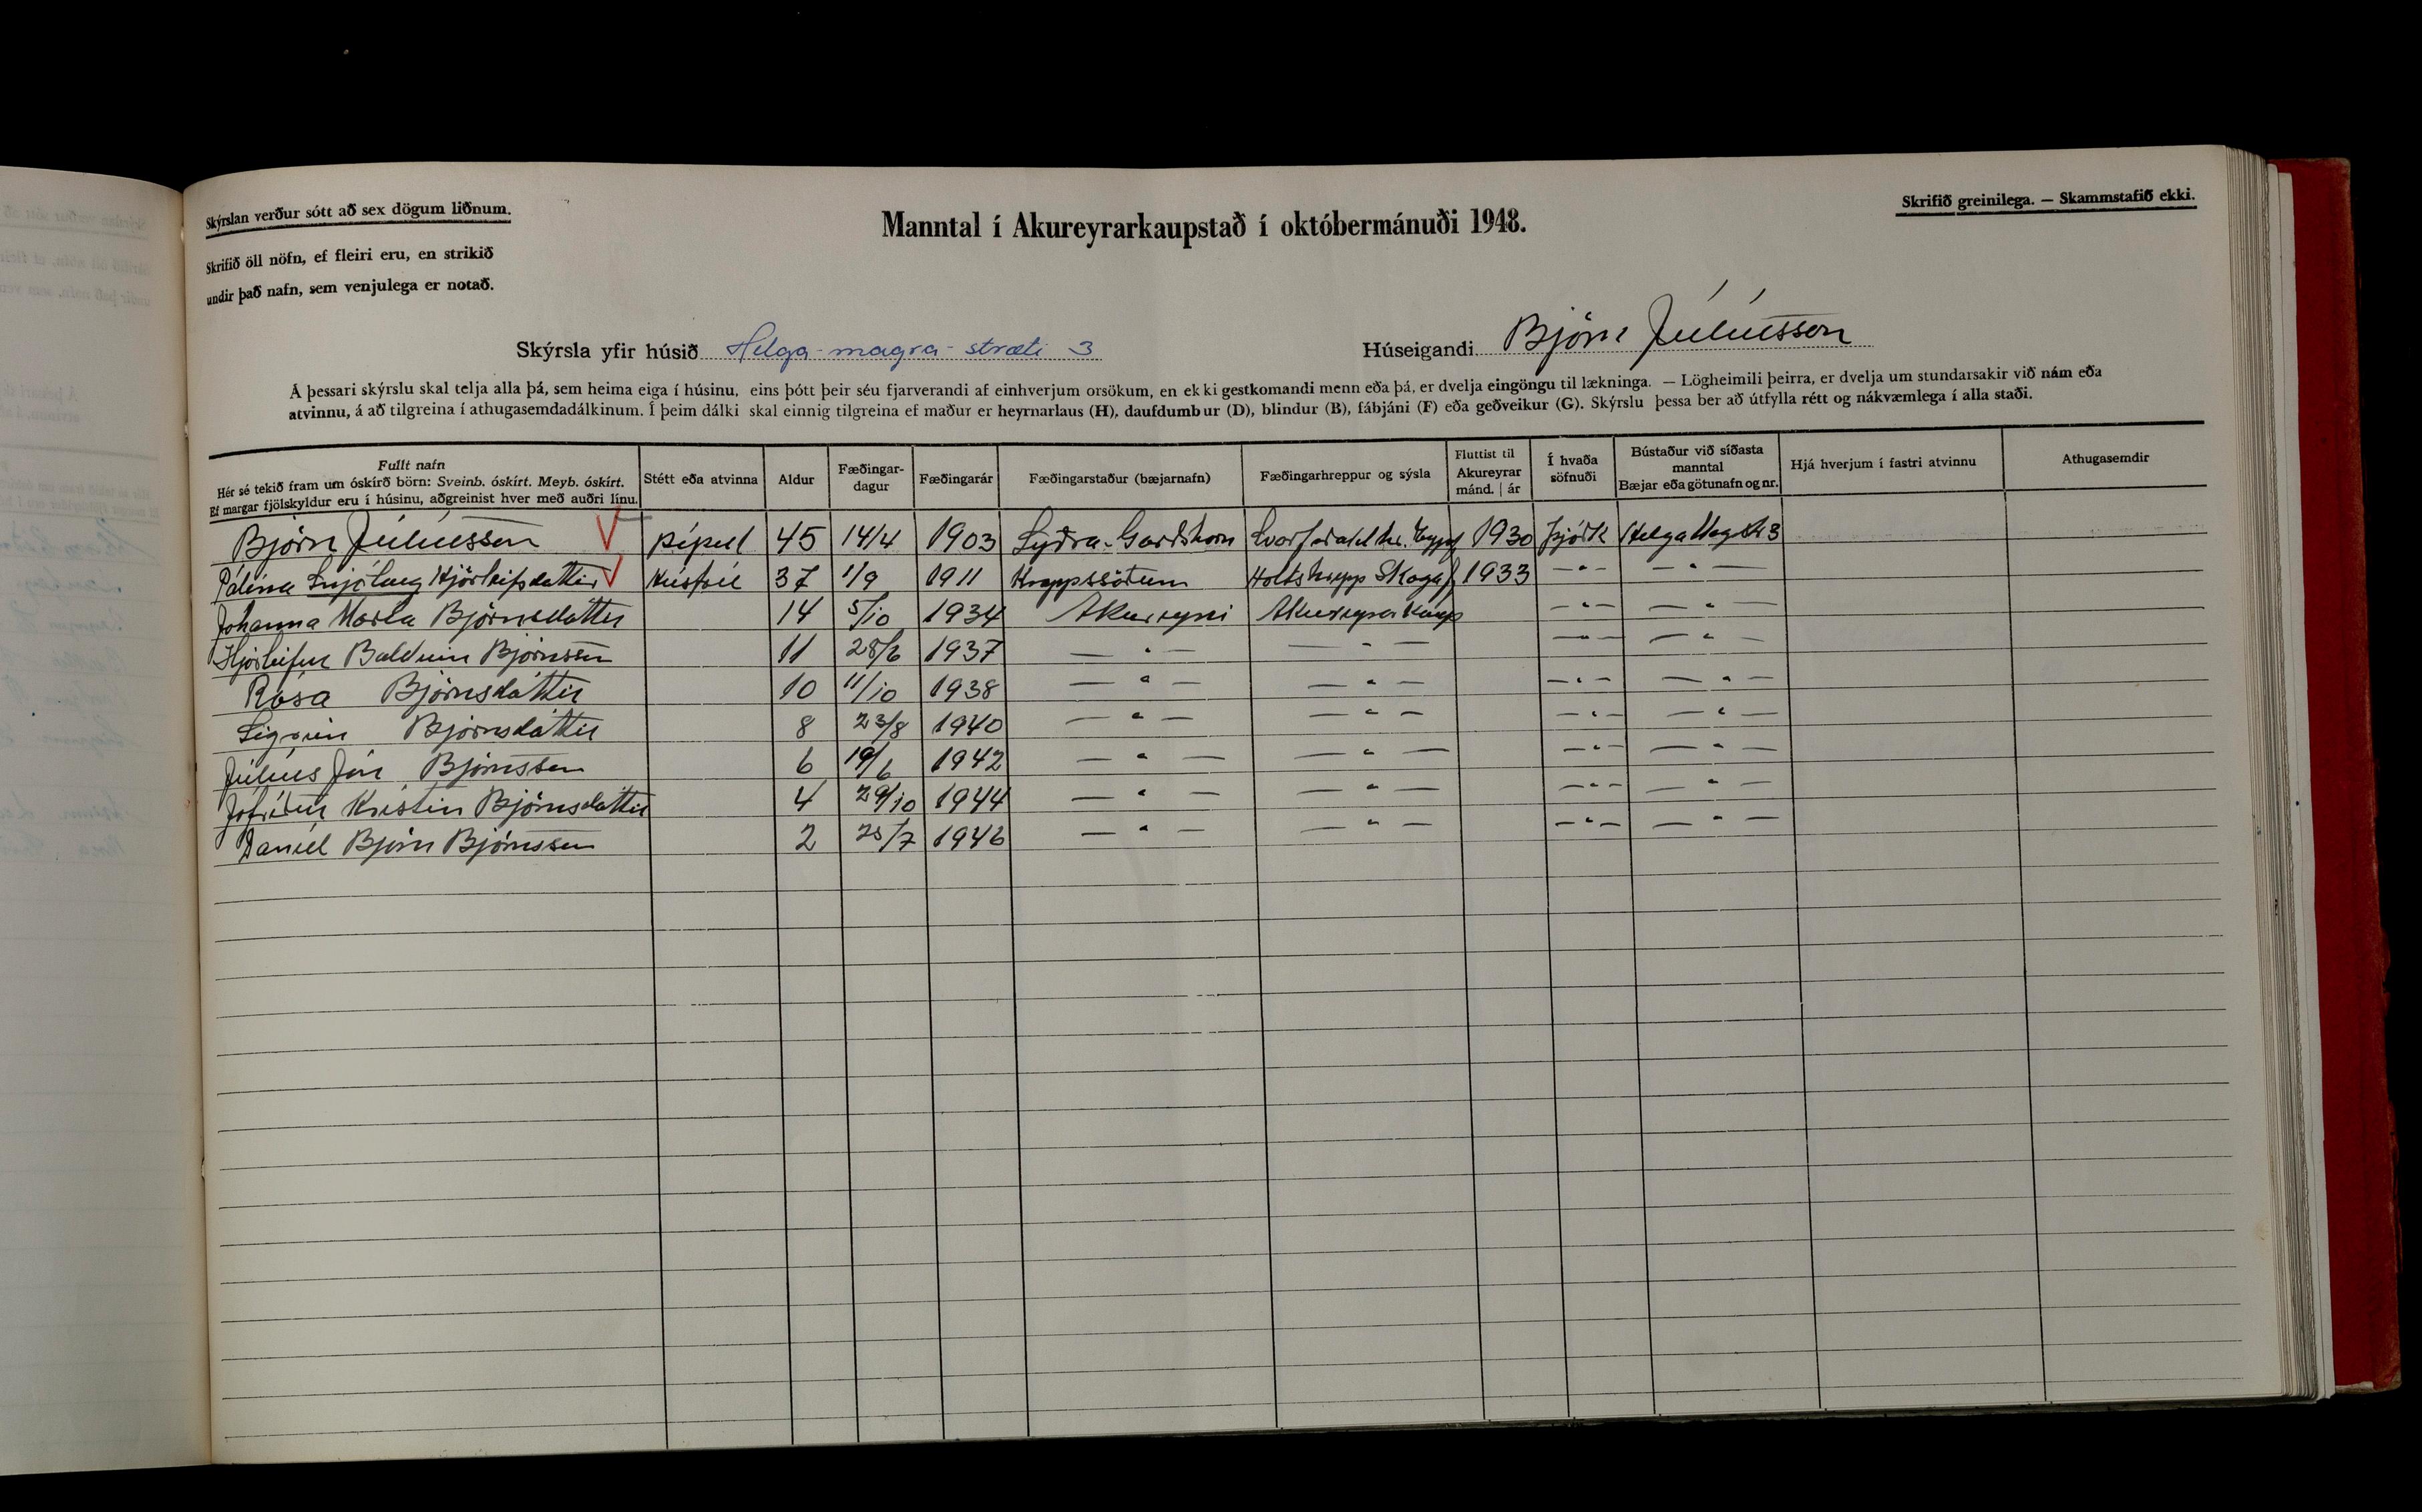 Skýrslan verður sótt að sex dögum liðnum.
Skrifið öll nöfn, ef fleiri eru, en strikið
undir það nafn, sem venjulega er notað.
Manntal í Akureyrarkaupstað í októbermánuði 1948.
Skrifið greinilega. — Skammstafið ekki.
Skýrsla yfir húsið Helga-magra-stræti 3 Húseigandi Björn Júlíusson
Á þessari skýrslu skal telja alla þá, sem heima eiga í húsinu, eins þótt þeir séu fjarverandi af einhverjum orsökum, en ekki gestkomandi menn eða þá, er dvelja eingöngu til lækninga. — Lögheimili þeirra, er dvelja um stundarsakir við nám eða
atvinnu, á að tilgreina í athugasemdadálkinum. Í þeim dálki skal einnig tilgreina ef maður er heyrnarlaus (H), daufdumbur (D), blindur (B), fábjáni (F) eða geðveikur (G). Skýrslu þessa ber að útfylla rétt og nákvæmlega í alla staði.
Fullt nafn
Hér sé tekið fram um óskírð börn: Sveinb. óskírt. Meyb. óskírt.
Ef margar fjölskyldur eru í húsinu, aðgreinist hver með auðri línu.
Stétt eða atvinna
Aldur
Fæðingar-
dagur
Fæðingarár
Fæðingarstaður (bæjarnafn)
Fæðingarhreppur og sýsla
Fluttist til
Akureyrar
mánd. | ár
Í hvaða
söfnuði
Bústaður við síðasta
manntal
Bæjar eða götunafn og nr.
Hjá hverjum í fastri atvinnu
Athugasemdir
Björn Júlíusson 45 14/4 1903 Syðra-Garðshorn 1930 Þjóðk Helga Mag str 3
Pálína Snjólaug Hjörleifsdóttir Húsfrú 37 1/9 1911 Knappsstöðum Holtshrepp Skagaf 1933 — " — — " —
Jóhanna María Björnsdóttir 14 5/10 1934 Akureyri Akureyrarkaup — " — — " —
Hjörleifur Baldvin Björnsson 11 28/6 1937 — " — — " — — " — — " —
Rósa Björnsdóttir 10 11/10 1938 — " — — " — — " — — " —
Sigrún Björnsdóttir 8 23/8 1940 — " — — " — — " — — " —
Júlíus Jón Björnsson 6 19/6 1942 — " — — " — — " — — " —
Jófríður Kristín Björnsdóttir 4 29/10 1944 — " — — " — — " — — " —
Daníel Björn Björnsson 2 25/7 1946 — " — — " — — " — — " —